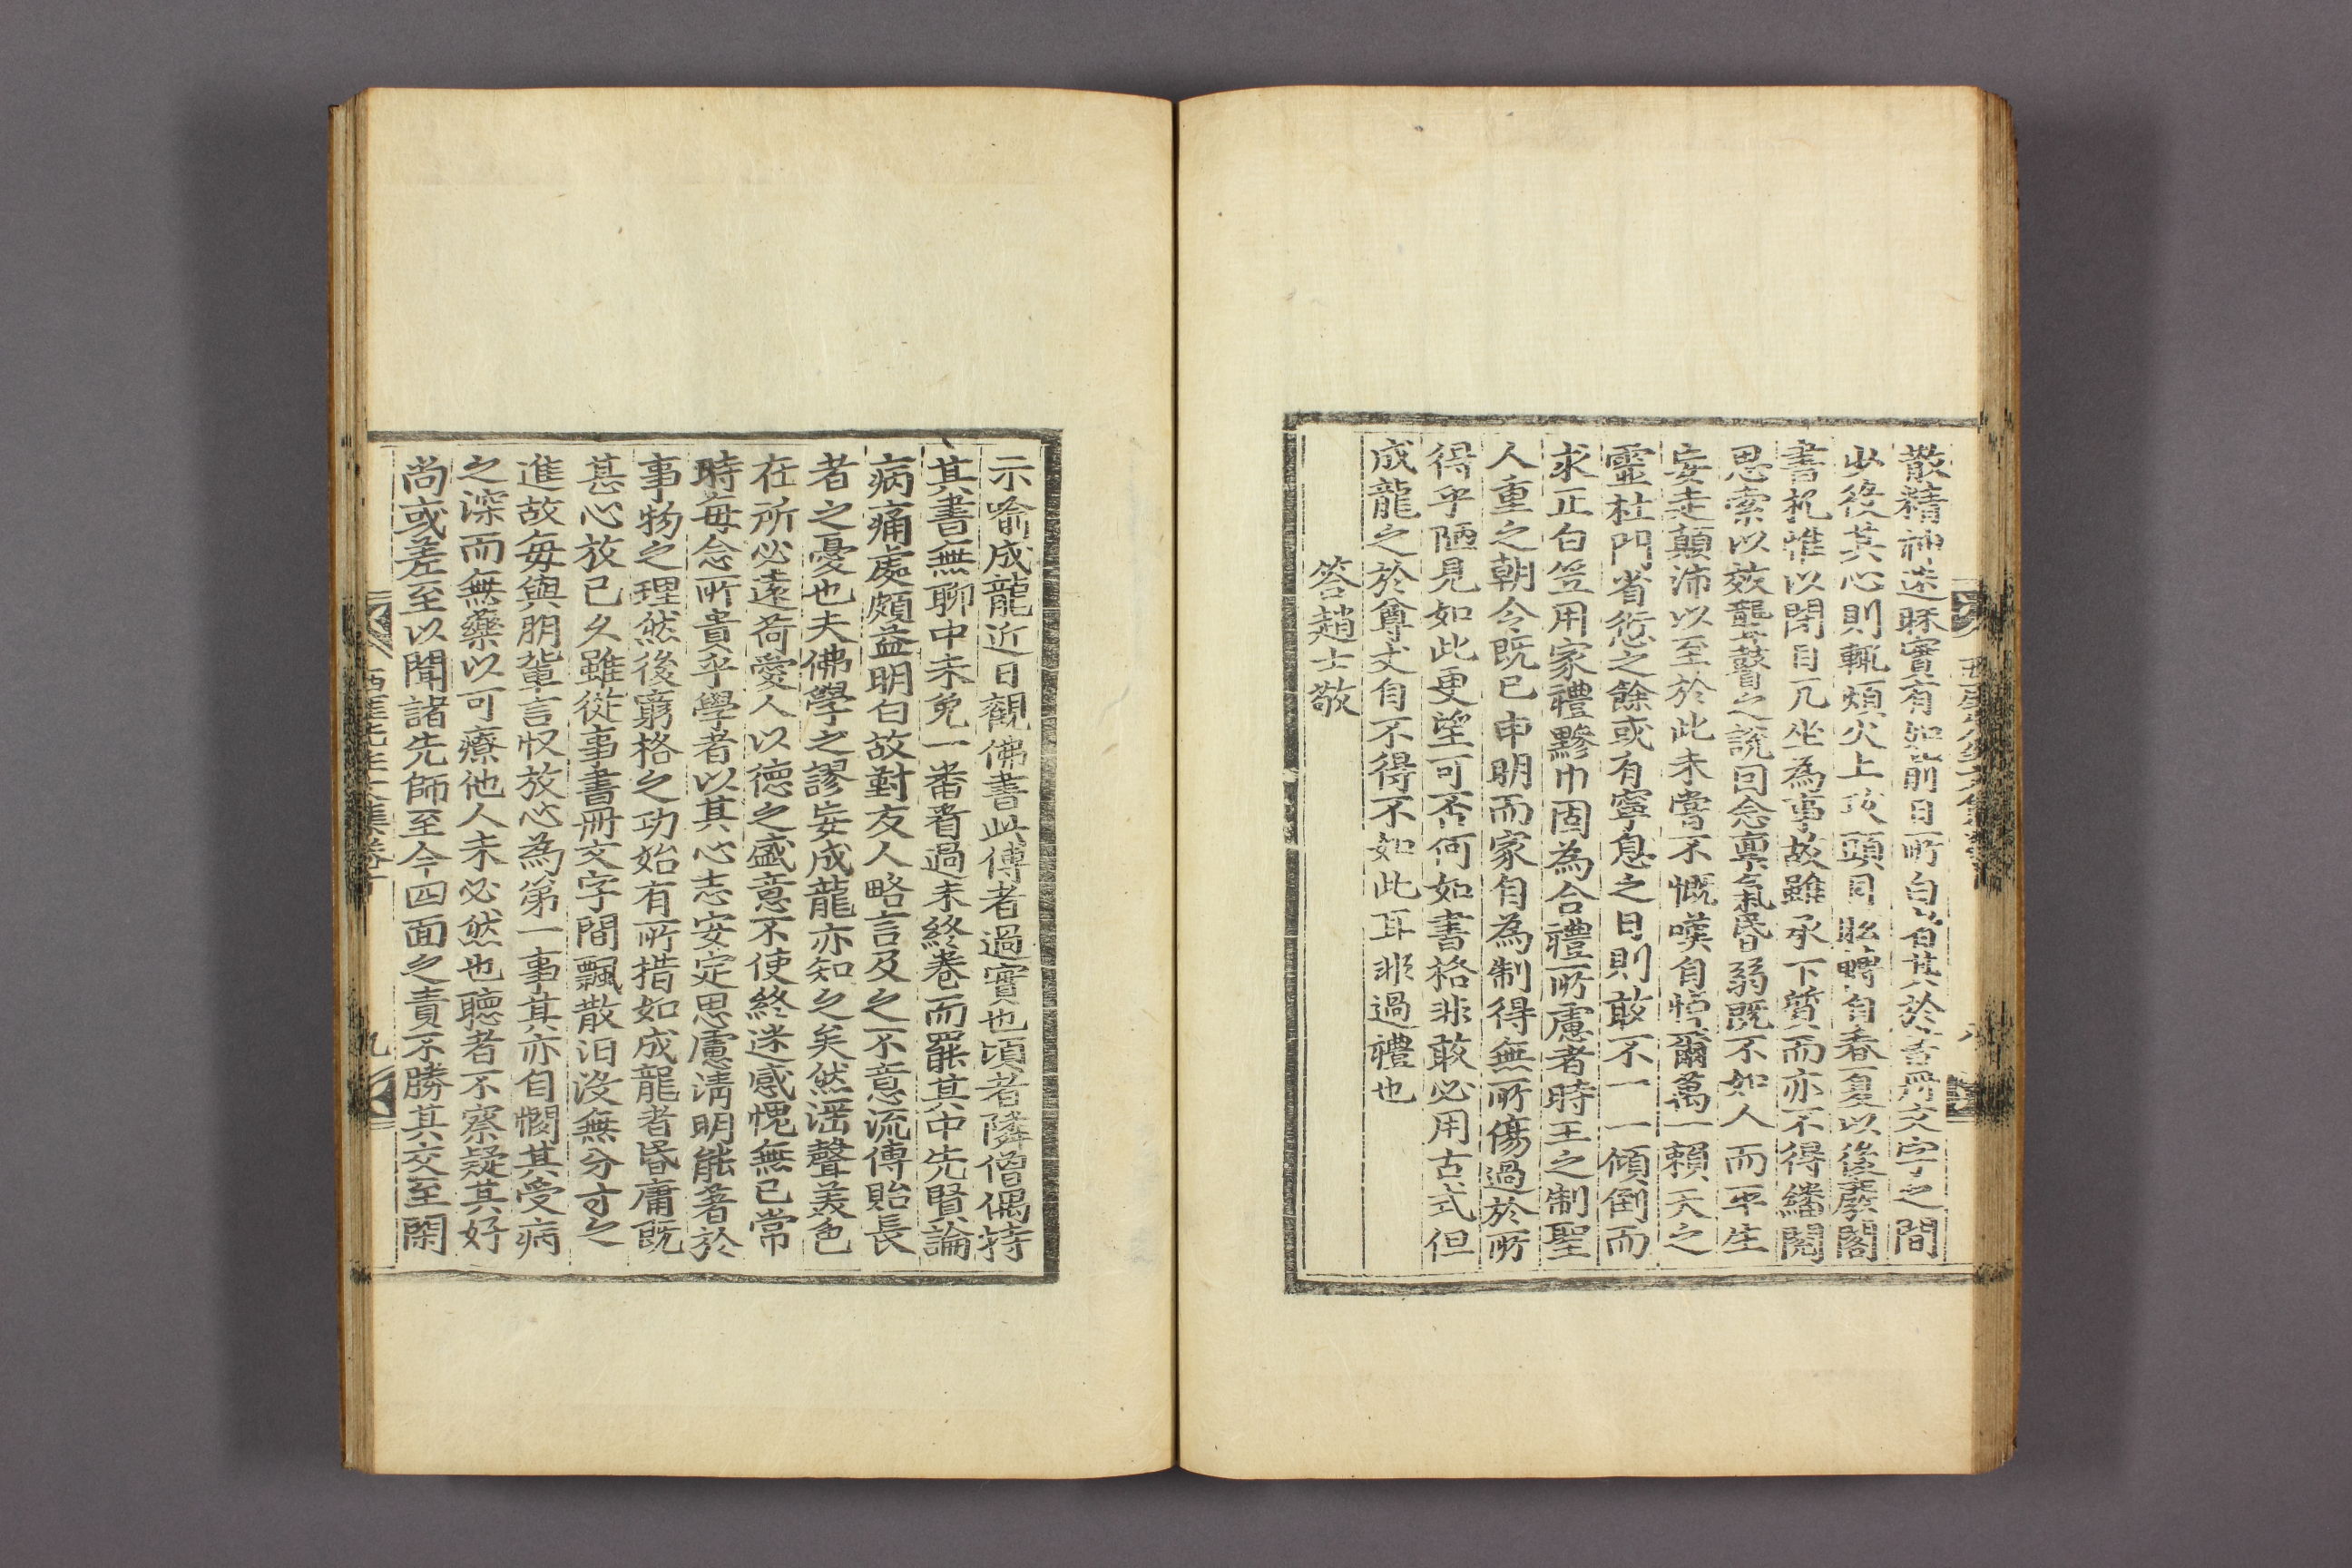 散精神迷眯實有如前日所白者其於書冊文字之間
少役其心則輒煩火上攻頭目眩轉自春夏以後廢閣
書札惟以閉目兀坐為事故雖承下質而亦不得繙閱
思索以效聾瞽之說回念稟氣昏弱既不如人而平生
妄走顛沛以至於此未嘗不慨嘆自悼爾萬一賴天之
靈杜門省愆之餘或有寧息之日則敢不一一傾倒而
求正白笠用家禮黲巾固為合禮所慮者時王之制聖
人重之朝令既已申明而家自為制得無所傷過於所
得乎陋見如此更望可否何如書格非敢必用古式但
成龍之於尊丈自不得不如此耳非過禮也
答趙士敬
示喻成龍近日觀佛書此傳者過實也頃者隣僧偶持
其書無聊中未免一番看過未終卷而罷其中先賢論
病痛處頗益明白故對友人略言及之不意流傳貽長
者之憂也夫佛學之謬妄成龍亦知之矣然滛聲美色
在所必遠荷愛人以德之盛意不使終迷感愧無已常
時每念所貴乎學者以其心志安定思慮淸明能著於
事物之理然後窮格之功始有所措如成龍者昏庸既
甚心放已久雖從事書冊文字間飄散汨沒無分寸之
進故每與朋輩言收放心為第一事其亦自憫其受病
之深而無藥以可療他人未必然也聽者不察疑其好
尚或差至以聞諸先師至今四面之責不勝其交至閑
西厓先生文集卷十
九